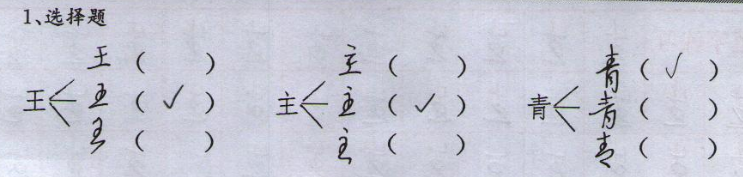 1、选择题
王（ ） 主（ ） 青（ ✓ ）
王 王（ ✓ ） 主 主（ ✓ ） 青 青（ ）
王（ ） 主（ ） 青（ ）